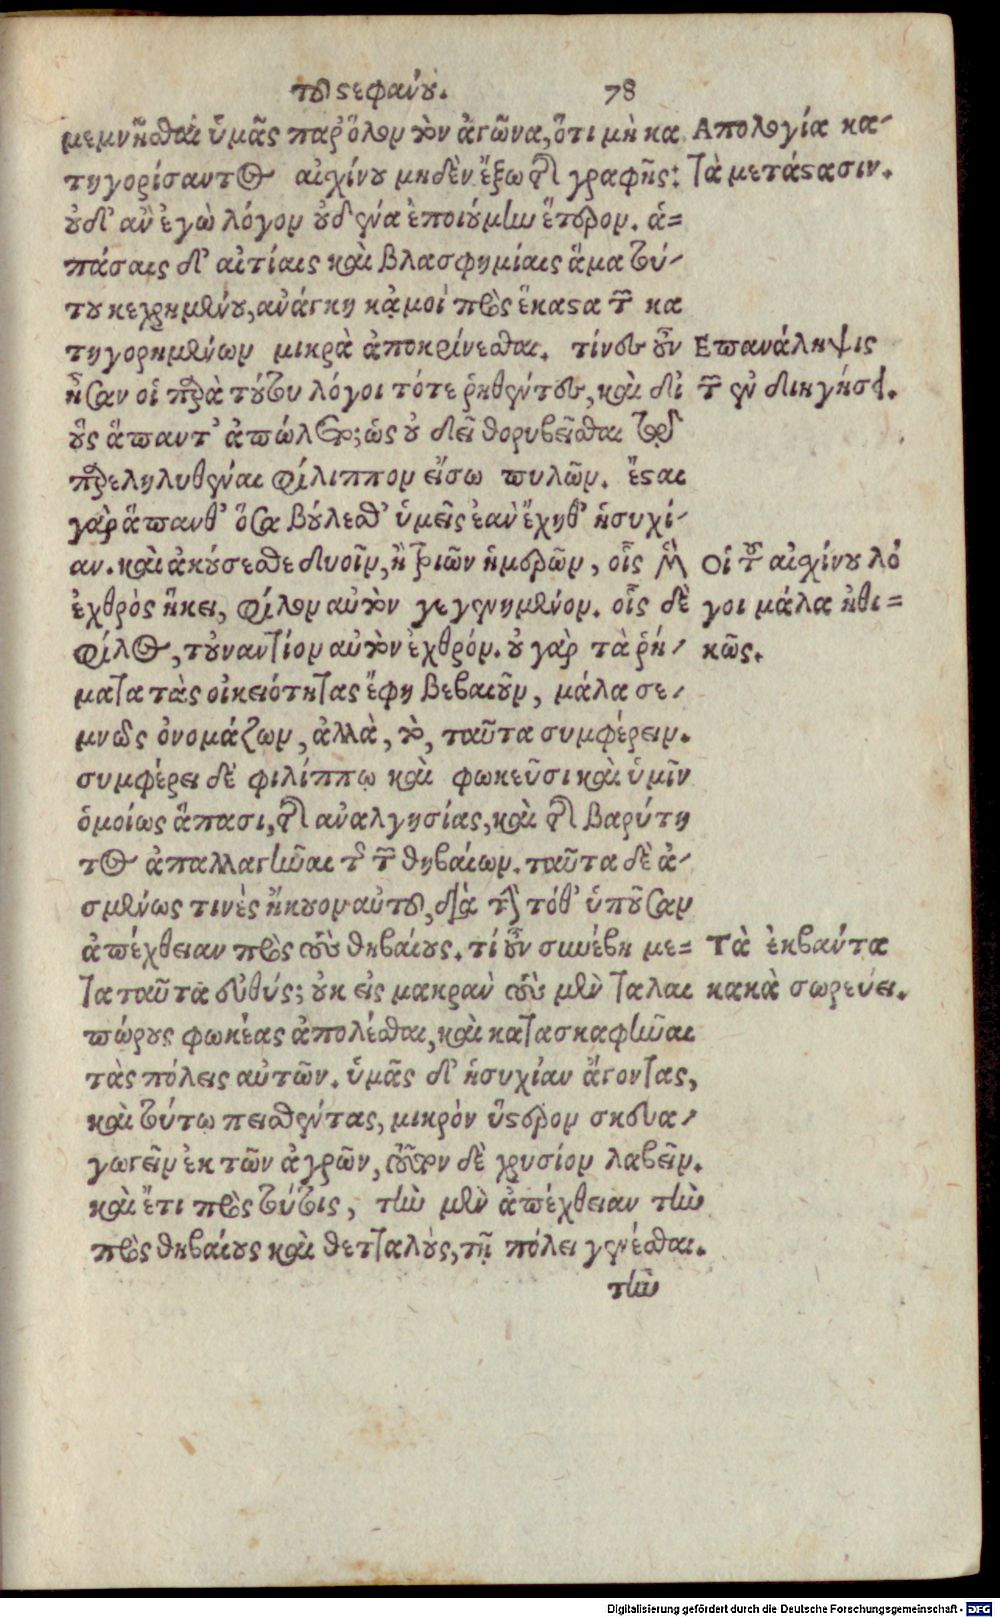 τοῦ στεφάνου. 78
μεμνῆσθαι ὑμᾶς παρ' ὅλον τὸν ἀγῶνα, ὅτι μὴ κα
τηγορήσαντος αἰσχίνου μηδὲν ἔξω τῆς γραφῆς:
οὐδ' ἂν ἐγὼ λόγον οὐδένα ἐποιούμην ἕτερον. ἁ=
πάσαις δ' αἰτίαις καὶ βλασφημίαις ἅμα τού-
του κεχρημένου, ἀνάγκη κἀμοὶ πρὸς ἕκαστα τῶν κα
τηγορημένων μικρὰ ἀποκρίνεσθαι. τίνες οὖν
ἦσαν οἱ παρὰ τούτου λόγοι τότε ῥηθέντες, καὶ δι'
οὓς ἅπαντ' ἀπώλετο; ὡς οὐ δεῖ θορυβεῖσθαι τῷ
παρεληλυθέναι φίλιππον εἴσω πυλῶν. ἔσται
γὰρ ἅπανθ' ὅσα βούλεσθ' ὑμεῖς ἐὰν ἔχηθ' ἡσυχί-
αν. καὶ ἀκούσεσθε δυοῖν, ἢ τριῶν ἡμερῶν, οἷς μὲν
ἐχθρὸς ἥκει, φίλον αὐτὸν γεγενημένον. οἷς δὲ
φίλος, τοὐναντίον αὐτὸν ἐχθρόν. οὐ γὰρ τὰ ῥή-
ματα τὰς οἰκειότητας ἔφη βεβαιοῦν, μάλα σε-
μνῶς ὀνομάζων, ἀλλὰ, τὸ, ταῦτα συμφέρειν.
συμφέρει δὲ φιλίππῳ καὶ φωκεῦσι καὶ ὑμῖν
ὁμοίως ἅπασι, τῆς ἀναλγησίας, καὶ τῆς βαρύτη
τος ἀπαλλαγῆναι τῆς τῶν θηβαίων. ταῦτα δὲ ἀ-
σμένως τινὲς ἤκουον αὐτοῦ, διὰ τὴν τόθ' ὑποῦσαν
ἀπέχθειαν πρὸς τοὺς θηβαίους. τί οὖν συνέβη με=
τα ταῦτα εὐθύς; οὐκ εἰς μακρὰν τοὺς μὲν ταλαι
πώρους φωκέας ἀπολέσθαι, καὶ κατασκαφῆναι
τὰς πόλεις αὐτῶν. ὑμᾶς δ' ἡσυχίαν ἄγοντας,
καὶ τούτω πεισθέντας, μικρὸν ὕστερον σκευα-
γωγεῖν ἐκ τῶν ἀγρῶν, τοῦτον δὲ χρυσίον λαβεῖν.
καὶ ἔτι πρὸς τούτοις, τὴν μὲν ἀπέχθειαν τὴν
πρὸς θηβαίους καὶ θετταλοὺς, τῇ πόλει γενέσθαι.
τὴν
Απολογία κα-
τὰ μετάστασιν.
Επανάληψις
τῶν ἐν διηγήσει.
Οἱ τοῦ αἰσχίνου λό
γοι μάλα ἠθι=
κῶς.
Τὰ ἐκβάντα
κακὰ σωρεύει.
Digitalisierung gefördert durch die Deutsche Forschungsgemeinschaft - DFG